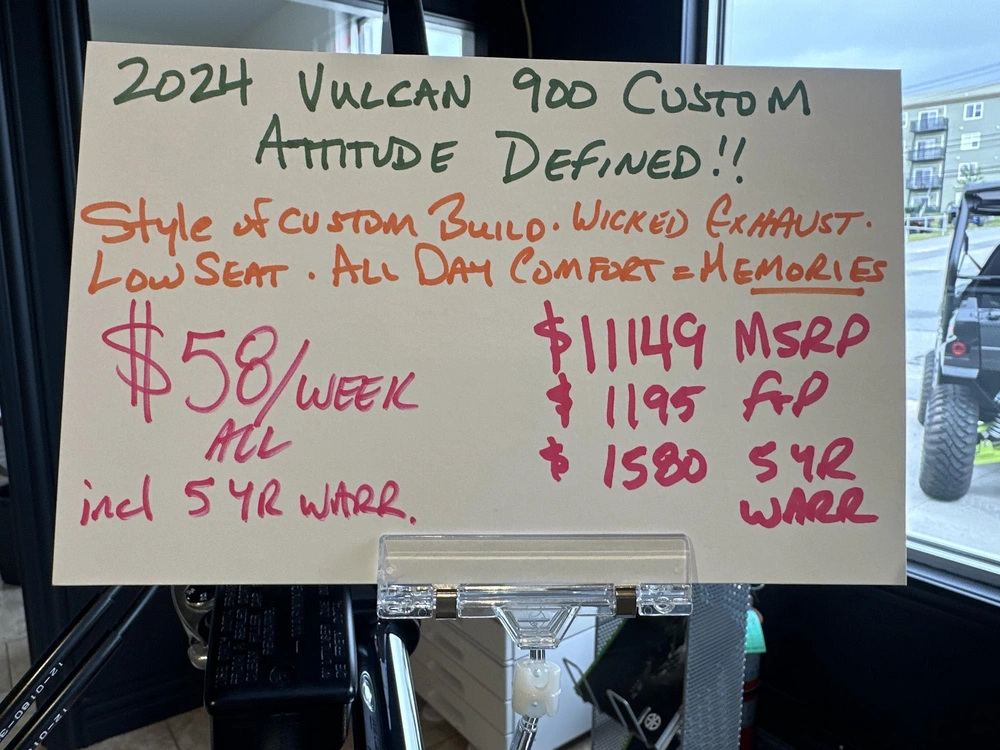 2024 VULCAN 900 CUSTOM
ATTITUDE DEFINED!!
Style of CUSTOM BUILD. WICKED EXHAUST.
LOW SEAT. ALL DAY COMFORT = MEMORIES
$58/WEEK
ALL
incl 5 YR WARR.
$11149 MSRP
$ 1195 F+P
$ 1580 5 YR
WARR